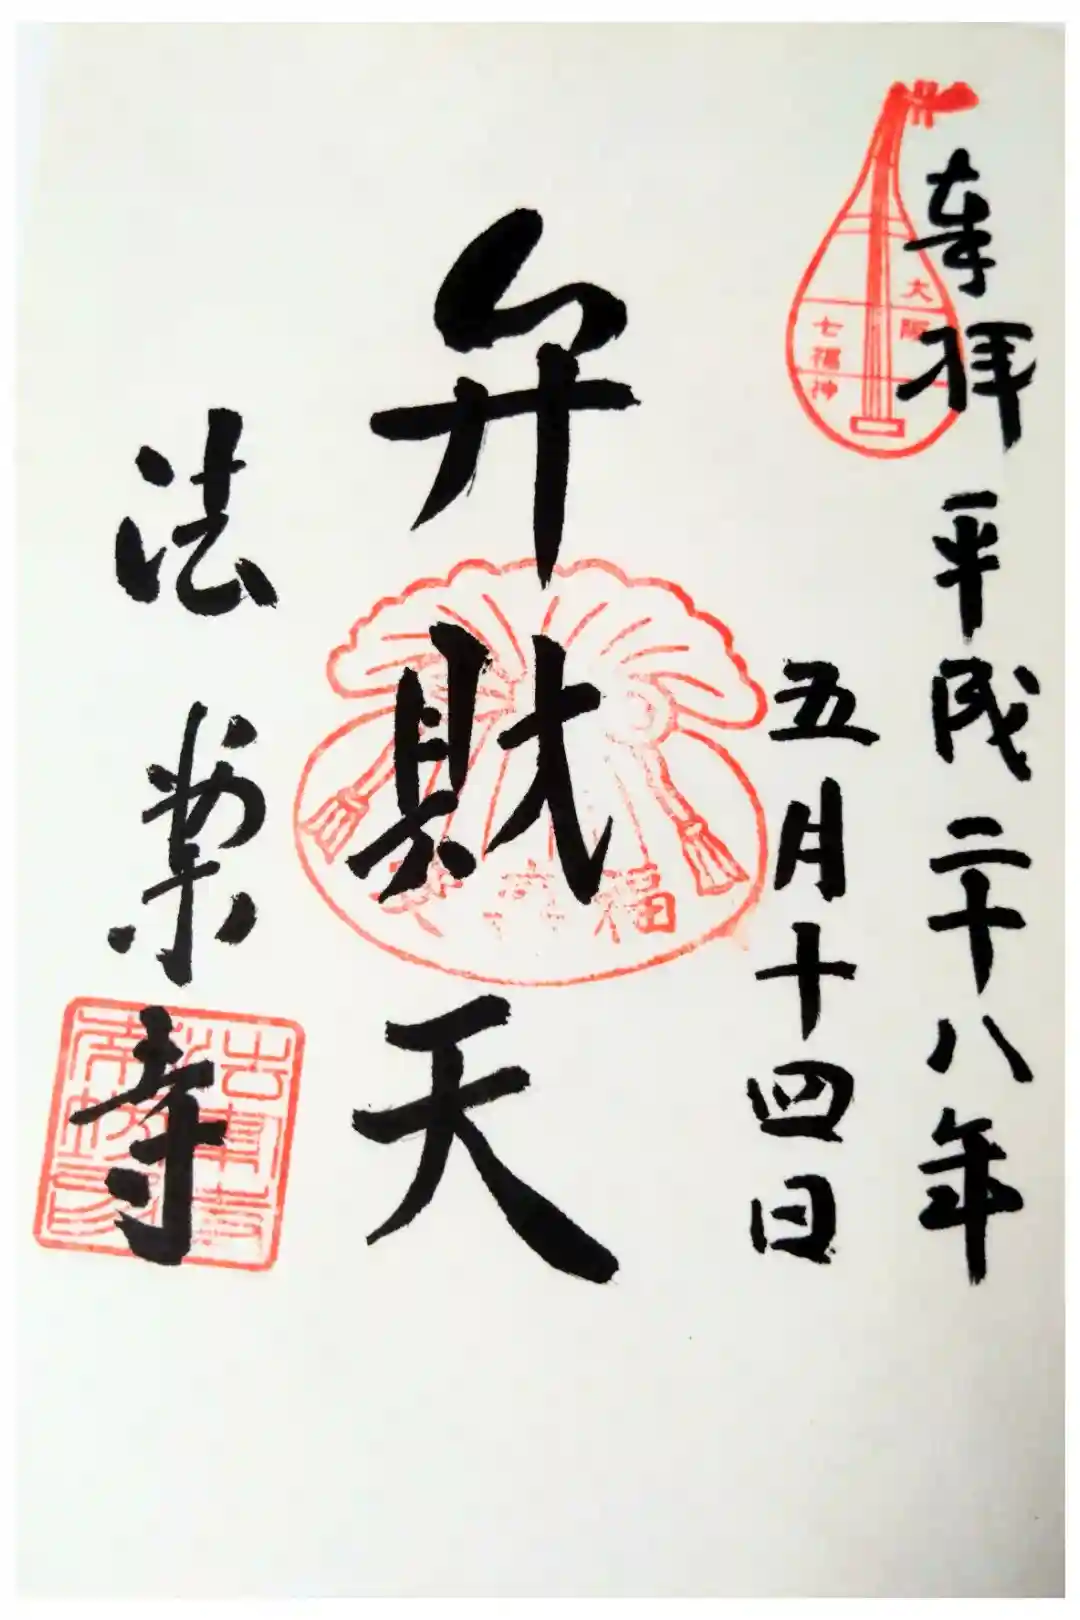 奉拝
平成二十八年
五月十四日
大阪
七福神
弁財天
法案寺